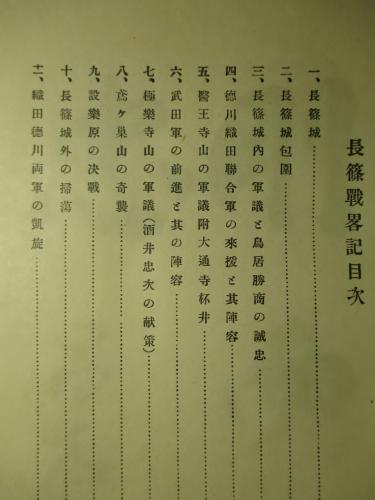 長篠戰畧記目次
一、長篠城
二、長篠城包圍
三、長篠城內の軍議と鳥居勝商の誠忠
四、德川織田聯合軍の來援と其陣容
五、醫王寺山の軍議附大通寺杯井
六、武田軍の前進と其の陣容
七、極樂寺山の軍議(酒井忠次の献策)
八、鳶ケ巢山の奇襲
九、設樂原の決戰
十、長篠城外の掃蕩
十一、織田德川両軍の凱旋